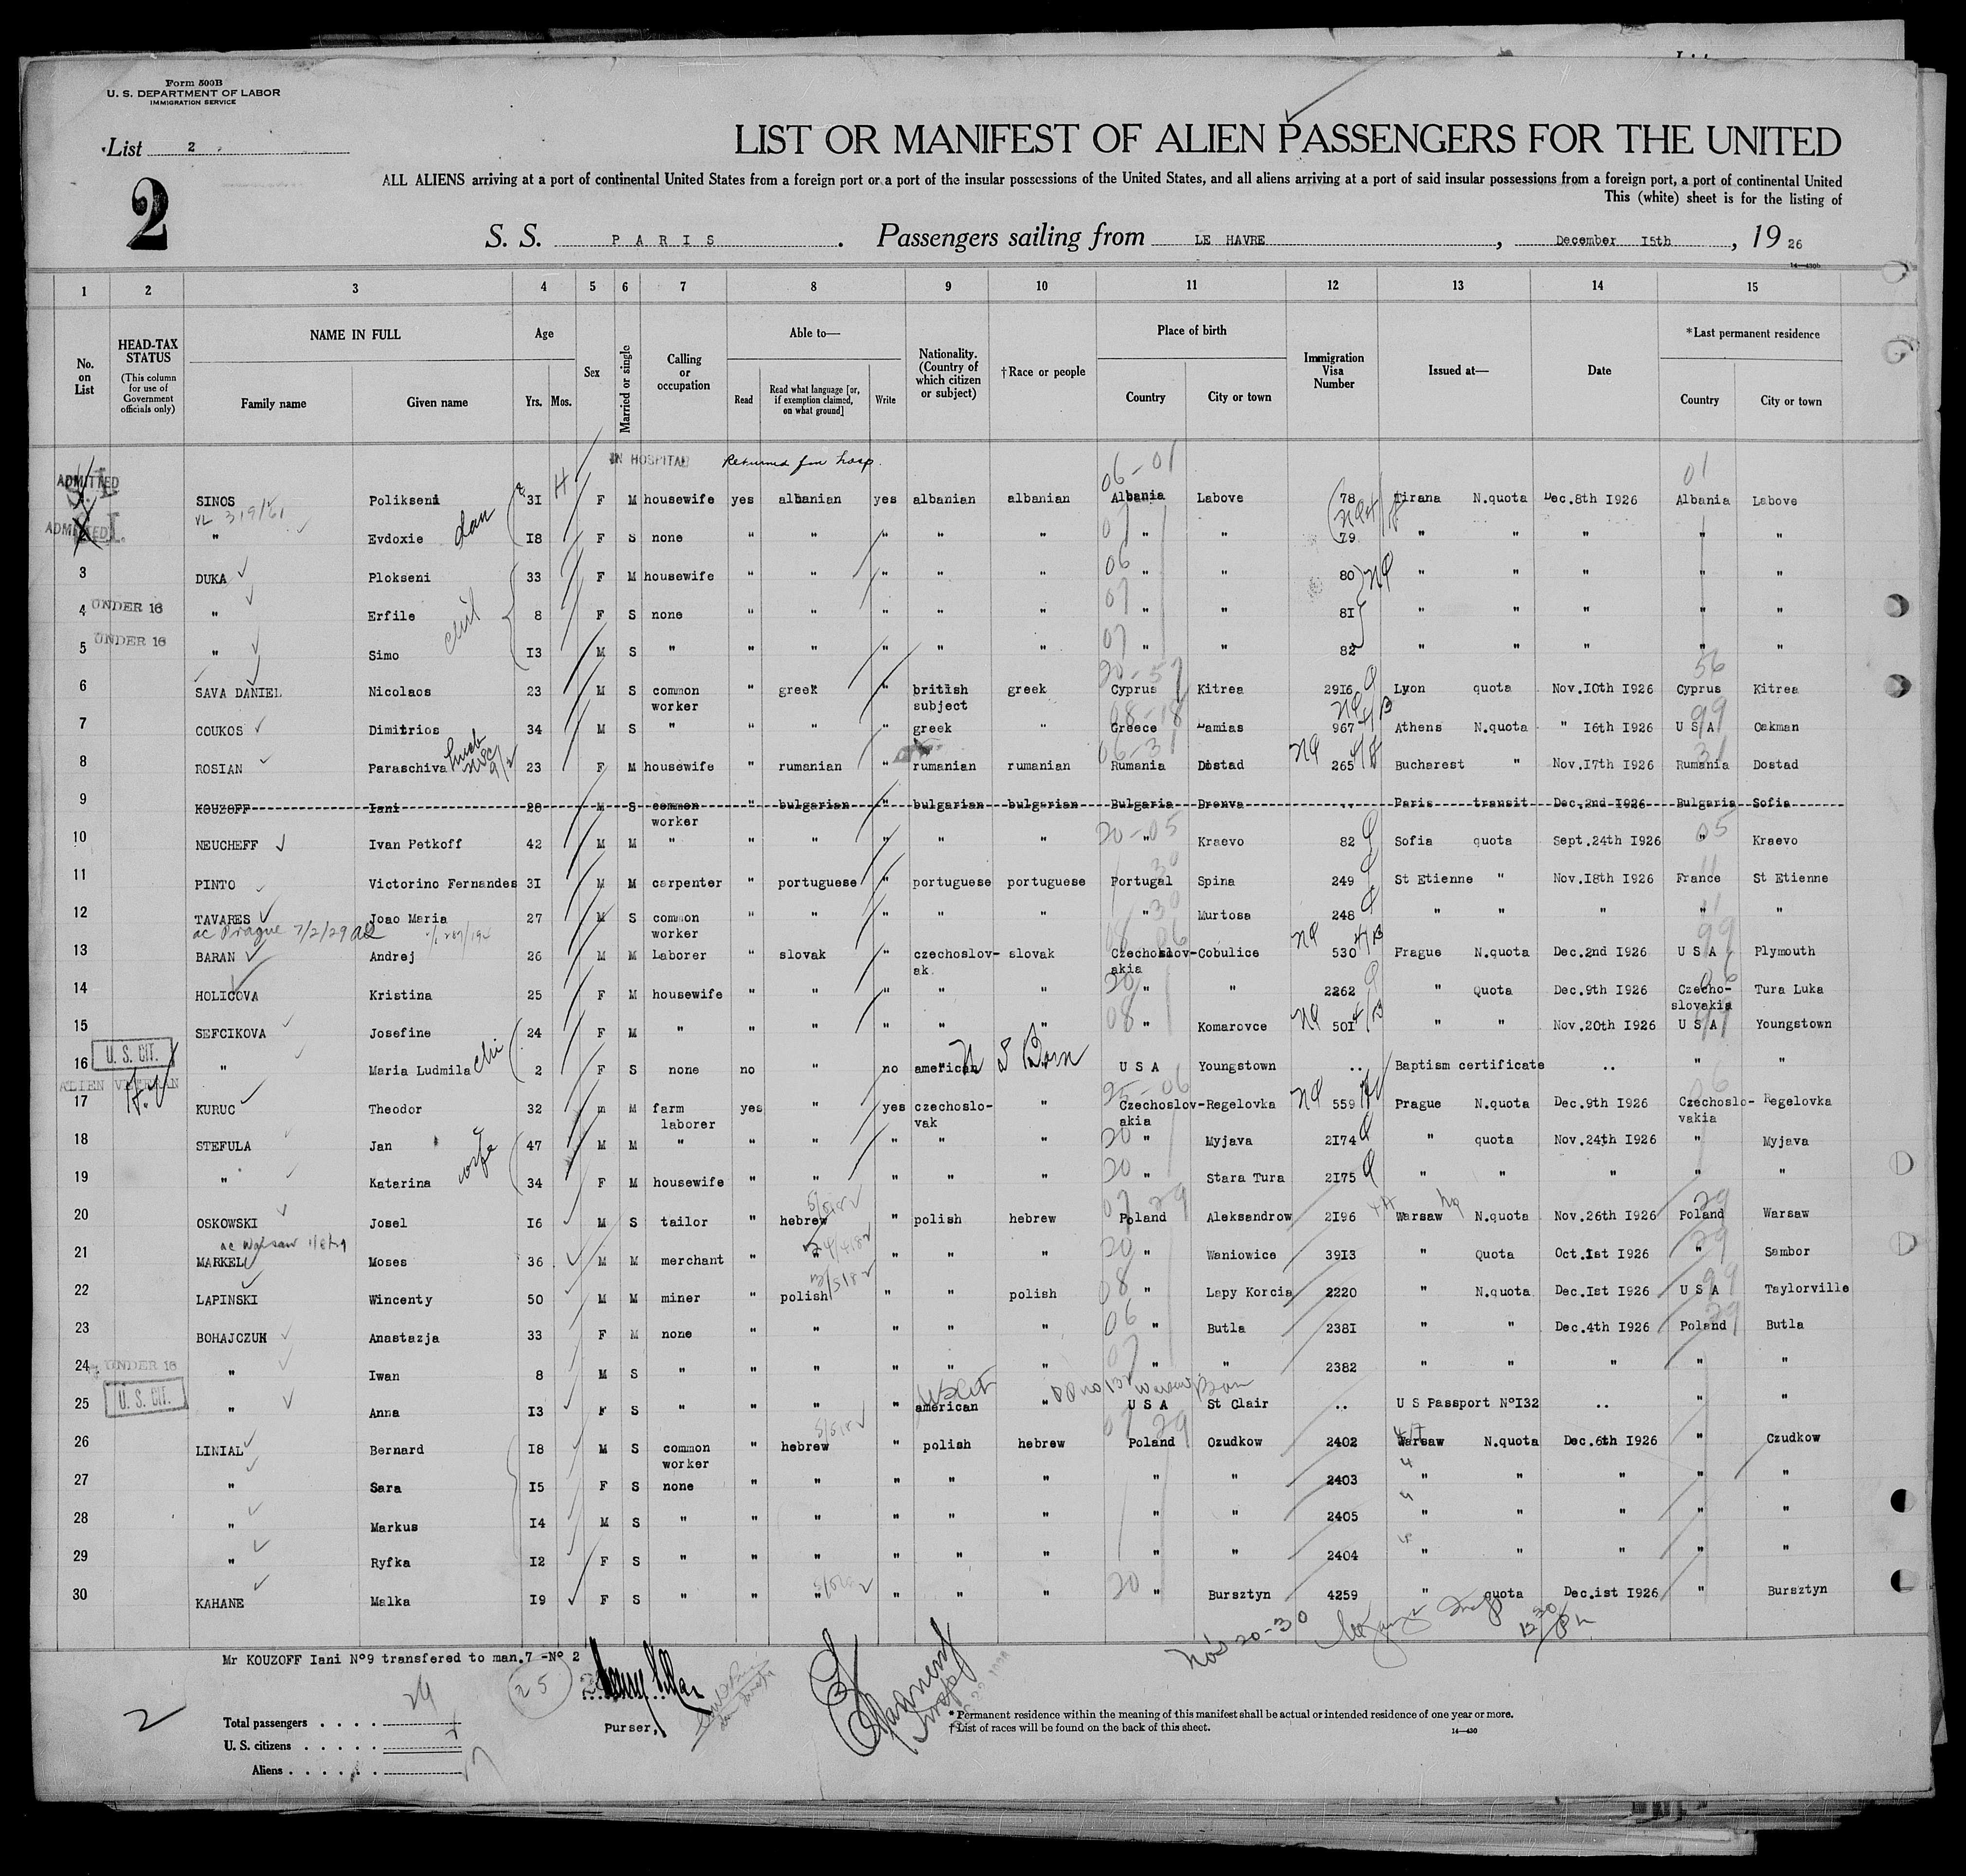 Form 500B
U. S. DEPARTMENT OF LABOR
IMMIGRATION SERVICE
List 2
2
LIST OR MANIFEST OF ALIEN PASSENGERS FOR THE UNITED
ALL ALIENS arriving at a port of continental United States from a foreign port or a port of the insular possessions of the United States, and all aliens arriving at a port of said insular possessions from a foreign port, a port of continental United
This (white) sheet is for the listing of
S. S. PARIS. Passengers sailing from LE HAVRE, December I5th, 19 26
14—430b
1 2 3 4 5 6 7 8 9 10 11 12 13 14 15
No. on List
HEAD-TAX STATUS (This column for use of Government officials only)
NAME IN FULL Family name Given name
Age Yrs. Mos.
Sex
Married or single
Calling or occupation
Able to— Read Read what language [or, if exemption claimed, on what ground] Write
Nationality. (Country of which citizen or subject)
†Race or people
Place of birth Country City or town
Immigration Visa Number
Issued at—
Date
*Last permanent residence Country City or town
IN HOSPITAL Returned from hosp. 06-01 01
ADMITTED SINOS Polikseni 3I F M housewife yes albanian yes albanian albanian Albania Labove 78 Tirana N.quota Dec.8th I926 Albania Labove
ADMITTED " Evdoxie dau I8 F S none " " " " " " " 79 " " " " "
3 DUKA Plokseni 33 F M housewife " " " " " " " 80 " " " " "
UNDER 16
4 " Erfile 8 F S none " " " " " " " 8I " " " " "
UNDER 16
5 " Simo I3 M S " " " " " " " " 82 " " " " "
6 SAVA DANIEL Nicolaos 23 M S common worker " greek " british subject greek Cyprus Kitrea 29I6 Lyon quota Nov.I0th I926 Cyprus Kitrea
7 COUKOS Dimitrios 34 M S " " " " greek " Greece Damias 967 Athens N.quota " I6th I926 U S A Oakman
8 ROSIAN Paraschiva 23 F M housewife " rumanian " rumanian rumanian Rumania Dostad 265 Bucharest " Nov.I7th I926 Rumania Dostad
9 KOUZOFF Iani 28 M S common worker " bulgarian " bulgarian bulgarian Bulgaria Drenva .. Paris transit Dec.2nd I926 Bulgaria Sofia
10 NEUCHEFF Ivan Petkoff 42 M M " " " " " " " Kraevo 82 Sofia quota Sept.24th I926 " Kraevo
11 PINTO Victorino Fernandes 3I M M carpenter " portuguese " portuguese portuguese Portugal Spina 249 St Etienne " Nov.I8th I926 France St Etienne
12 TAVARES Joao Maria 27 M S common worker " " " " " " Murtosa 248 " " " " "
ac Prague 7/2/29
13 BARAN Andrej 26 M M Laborer " slovak " czechoslov-ak slovak Czechoslov-akia Cobulice 530 Prague N.quota Dec.2nd I926 U S A Plymouth
14 HOLICOVA Kristina 25 F M housewife " " " " " " " 2262 " Quota Dec.9th I926 Czecho-slovakia Tura Luka
15 SEFCIKOVA Josefine 24 F M " " " " " " " Komarovce 50I " " Nov.20th I926 U S A Youngstown
U. S. CIT.
16 " Maria Ludmila 2 F S none no " no american U S Born U S A Youngstown .. Baptism certificate .. " "
ALIEN VETERAN
17 KURUC Theodor 32 m M farm laborer yes " yes czechoslo-vak " Czechoslov-akia Regelovka 559 Prague N.quota Dec.9th I926 Czechoslo-vakia Regelovka
18 STEFULA Jan 47 M M " " " " " " " Myjava 2I74 " quota Nov.24th I926 " Myjava
19 " Katarina wife 34 F M housewife " " " " " " Stara Tura 2I75 " " " " "
20 OSKOWSKI Josel I6 M S tailor " hebrew " polish hebrew Poland Aleksandrow 2I96 Warsaw N.quota Nov.26th I926 Poland Warsaw
ac Warsaw
21 MARKEL Moses 36 M M merchant " " " " " " Waniowice 39I3 " Quota Oct.1st I926 " Sambor
22 LAPINSKI Wincenty 50 M M miner " polish " " polish " Lapy Korcia 2220 " N.quota Dec.Ist I926 U S A Taylorville
23 BOHAJCZUK Anastazja 33 F M none " " " " " " Butla 238I " " Dec.4th I926 Poland Butla
UNDER 16
24 " Iwan 8 M S " " " " " " " " 2382 " " " " "
U. S. CIT.
25 " Anna I3 F S " " " " american " U S A St Clair .. U S Passport N°I32 .. " "
26 LINIAL Bernard I8 M S common worker " hebrew " polish hebrew Poland Ozudkow 2402 Warsaw N.quota Dec.6th I926 " Czudkow
27 " Sara I5 F S none " " " " " " " 2403 " " " " "
28 " Markus I4 M S " " " " " " " " 2405 " " " " "
29 " Ryfka I2 F S " " " " " " " " 2404 " " " " "
30 KAHANE Malka I9 F S " " " " " " " Bursztyn 4259 " quota Dec.1st I926 " Bursztyn
Nos 20-30
Mr KOUZOFF Iani N°9 transfered to man.7 -N° 2
25
2
Purser,
Total passengers
U. S. citizens
Aliens
* Permanent residence within the meaning of this manifest shall be actual or intended residence of one year or more.
† List of races will be found on the back of this sheet.
14—430